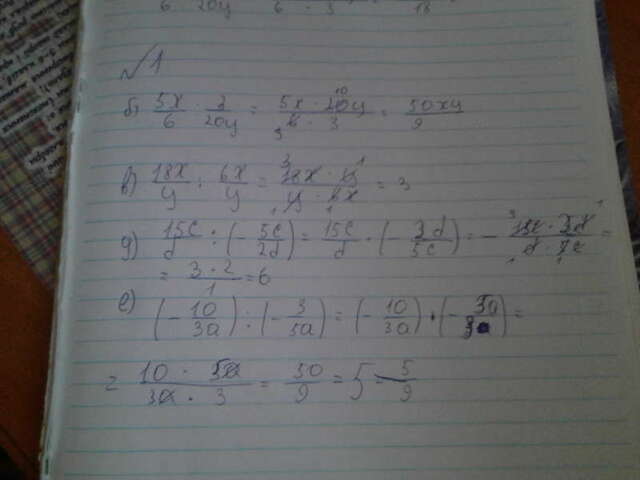 6 20y 6 · 3 18
√1
б) 5x/6 : 3/20y = 5x · 20y/6 · 3 = 50xy/9
в) 18x/y : 6x/y = 18x · y/y · 6x = 3
д) 15c/d : (- 5c/2d) = 15c/d · (- 2d/5c) = - 15c · 2d/d · 5c =
= 3 · 2/1 = 6
е) (- 10/3a) : (- 3/5a) = (- 10/3a) · (- 5a/3) =
= 10 · 5a/3a · 3 = 50/9 = 5 5/9